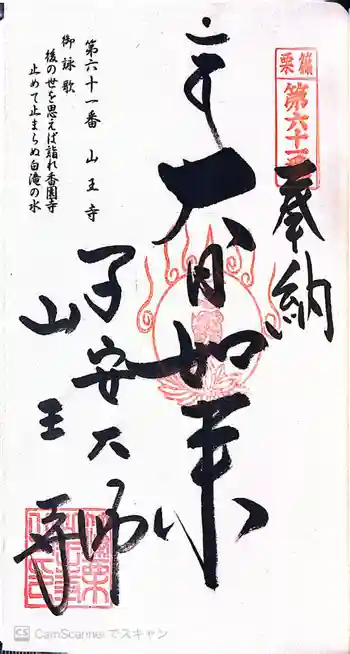 篠栗
第六十一番
奉納
大日如来
子安大師
山王寺
第六十一番 山王寺
御詠歌
後の世を思えば詣れ香園寺
止めて止まらぬ白滝の水
CS CamScanner でスキャン